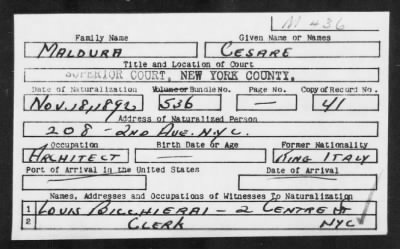 M 436
Family Name Given Name or Names
MALDURA CESARE
Title and Location of Court
SUPERIOR COURT, NEW YORK COUNTY.
Date of Naturalization Volume or Bundle No. Page No. Copy of Record No.
Nov. 18, 1892 536 — 41
Address of Naturalized Person
208 - 2nd Ave. N.Y.C.
Occupation Birth Date or Age Former Nationality
ARCHITECT — King ITALY
Port of Arrival in the United States Date of Arrival
Names, Addresses and Occupations of Witnesses To Naturalization
1 LOUIS - 2 CENTRE St
2 CLERK NYC